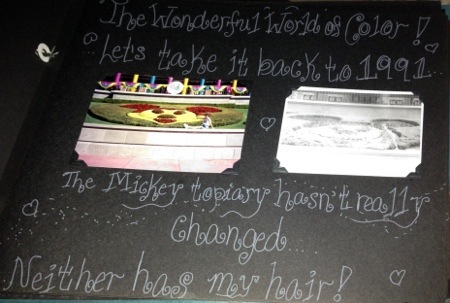 The Wonderful World of Color!
Let's take it back to 1991...
The Mickey topiary hasn't really
Changed...
Neither has my hair!